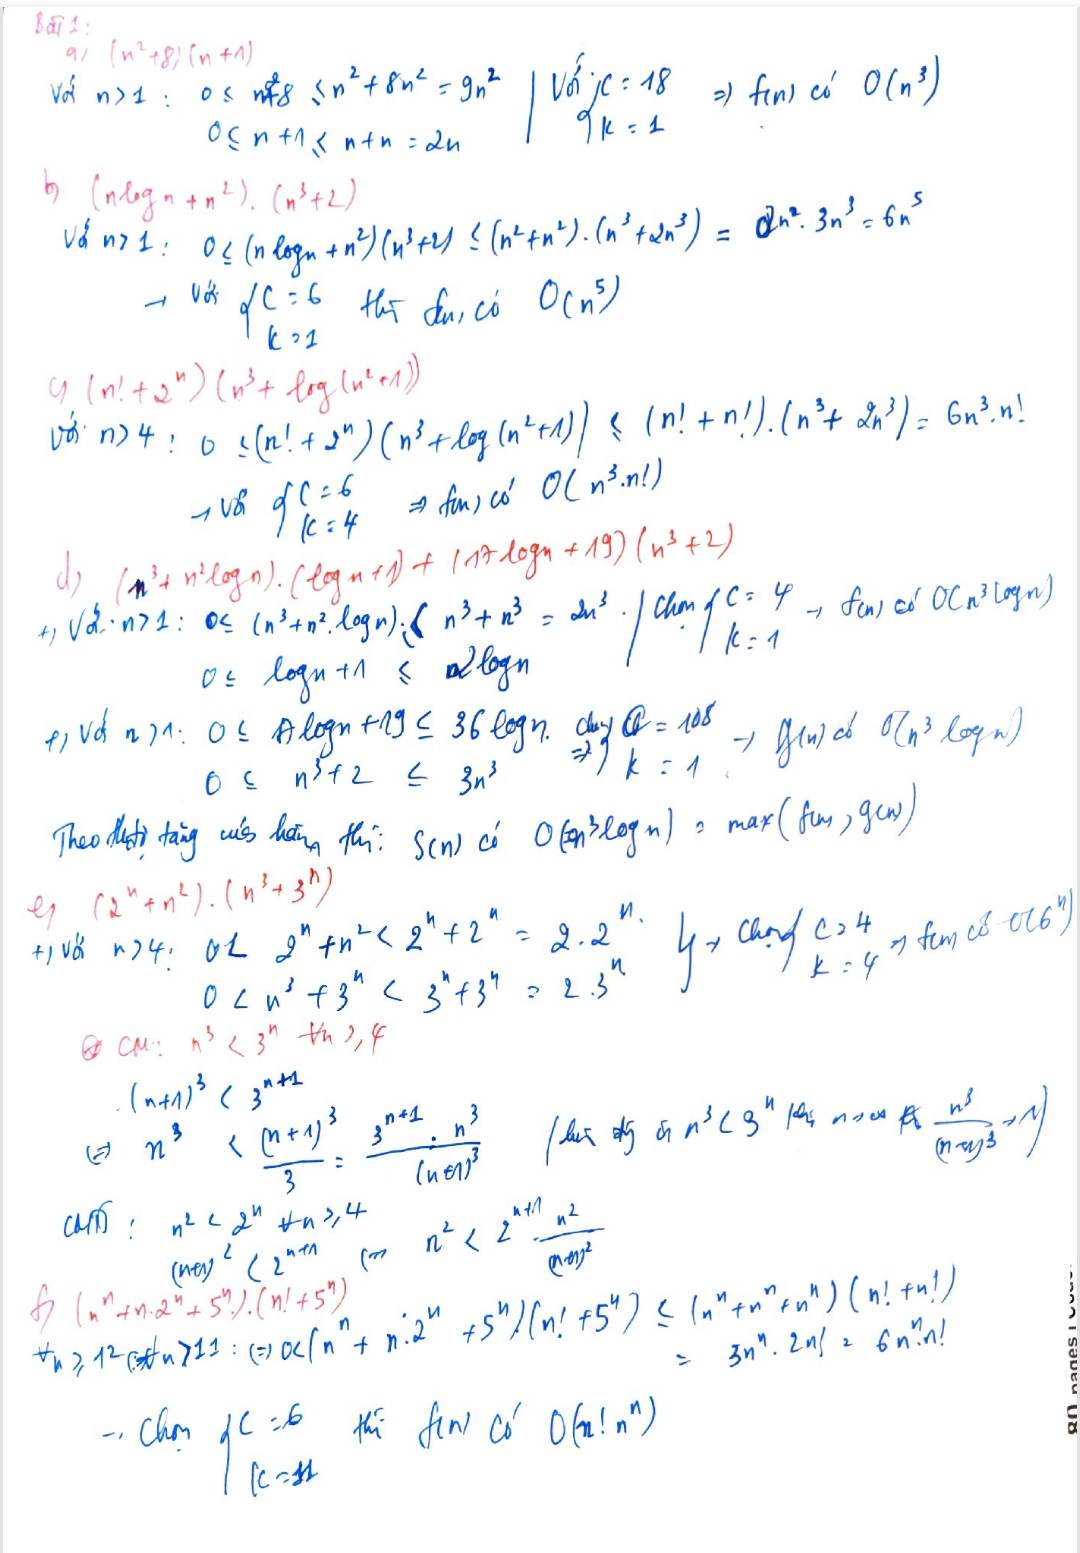 Bài 1:
a) (n²+8)(n+1)
Với n>1: 0 ≤ n²+8 ≤ n²+8n² = 9n² | Với {C=18 ⇒ f(n) có O(n³)
0 ≤ n+1 ≤ n+n = 2n k=1
b) (nlogn+n²).(n³+2)
Với n>1: 0 ≤ (nlogn+n²)(n³+2) ≤ (n²+n²).(n³+2n³) = 2n².3n³ = 6n⁵
→ Với {C=6 thì f(n) có O(n⁵)
k=1
c) (n!+2ⁿ)(n³+log(n²+1))
Với n>4: 0 ≤ (n!+2ⁿ)(n³+log(n²+1)) ≤ (n!+n!).(n³+2n³) = 6n³.n!
→ Với {C=6 ⇒ f(n) có O(n³.n!)
k=4
d) (n³+n²logn).(logn+1)+(17logn+19)(n³+2)
+) Với n>1: 0≤ (n³+n².logn) ≤ n³+n³ = 2n³ | Chọn {C=4 → f(n) có O(n³logn)
0 ≤ logn+1 ≤ 2logn k=1
+) Với n>1: 0 ≤ 17logn+19 ≤ 36logn. ⇒ {C=108 → g(n) có O(n³logn)
0 ≤ n³+2 ≤ 3n³ k=1
Theo tăng của hàm thì: S(n) có O(n³logn) = max(f(n), g(n))
e) (2ⁿ+n²).(n³+3ⁿ)
+) Với n>4: 0< 2ⁿ+n² < 2ⁿ+2ⁿ = 2.2ⁿ. } → Chọn {C=4 → f(n) có O(6ⁿ)
0 < n³+3ⁿ < 3ⁿ+3ⁿ = 2.3ⁿ k=4
CM: n³ < 3ⁿ ∀n≥4
(n+1)³ < 3ⁿ⁺¹
⇔ n³ < (n+1)³/3 = 3ⁿ⁺¹.n³/(n+1)³ n³<3ⁿ khi n→∞ n³/(n+1)³→1)
CMTT: n² < 2ⁿ ∀n≥4
(n+1)² < 2ⁿ⁺¹ ⇔ n² < 2ⁿ⁺¹.n²/(n+1)²
f) (nⁿ+n.2ⁿ+5ⁿ).(n!+5ⁿ)
∀n≥12 ⇔ ∀n>11: ⇔ 0<(nⁿ+n.2ⁿ+5ⁿ)(n!+5ⁿ) ≤ (nⁿ+nⁿ+nⁿ)(n!+n!)
= 3nⁿ.2n! = 6nⁿ.n!
→ Chọn {C=6 thì f(n) có O(n!nⁿ)
k=11
80 pages